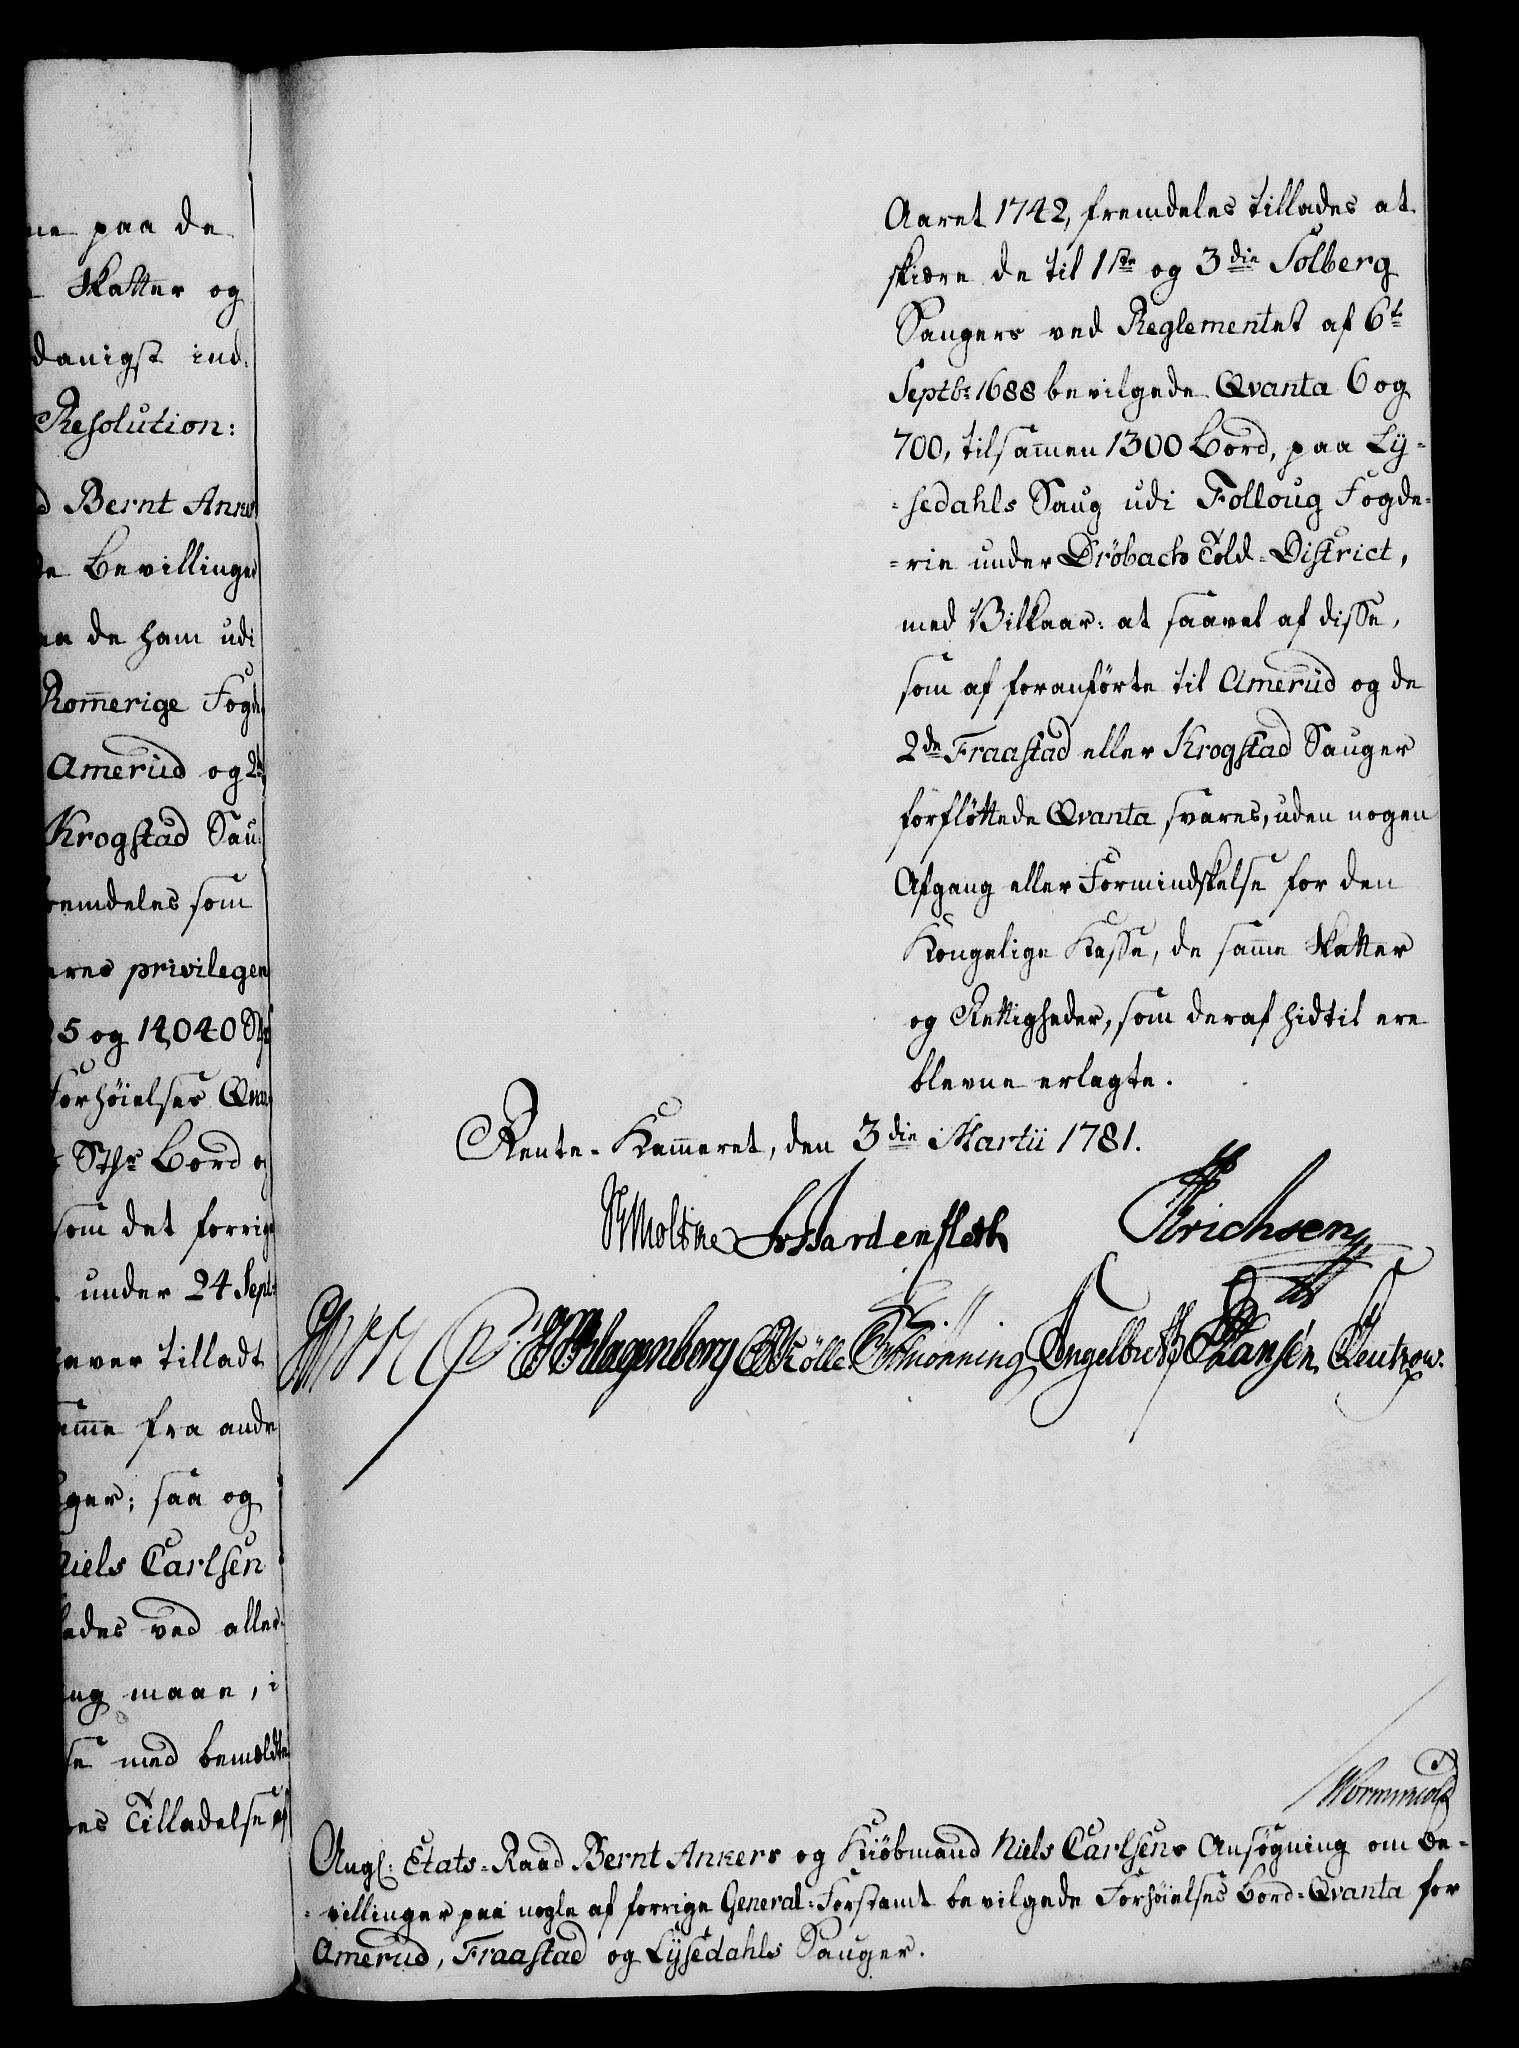 ne paa de
Skatter og
danigst ind-
Resolution:
Bernt Anker
de Bevillinger
de ham udi
Rom̄erige Fogde
Amerud og 2de
Krogstad Sau-
fremdeles som
privilegen
25 og 14,040 Stk
Forhöielses Qvan
Sthr Bord og
som det forrige
under 24 Sept:
haver tilladt
fra andre
ger; saa og
Niels Carlsen
ledes ved aller-
maae, i
se med bemeldte
Tilladelse af
Aaret 1742, fremdeles tillades at
skiære de til 1ste og 3die Solberg
Sauger ved Reglementet af 6te
Septbr 1688 bevilgede Qvanta 6 og
700, tilsam̄en 1300 Bord, paa Ly-
-sedahls Saug udi Folloug Fogde-
-rie under Dröbachs Told-District,
med Vilkaar: at saavel af disse,
som af foranförte til Amerud og de
2de Fraastad eller Krogstad Sauger
forflöttede Qvanta svares, uden nogen
Afgang eller Formindskelse for den
Kongelige Kasse, de sam̄e Skatter
og Rettigheder, som deraf hidtil ere
blevne erlagte.
Rente-Kam̄eret, den 3die Martii 1781.
Moltke Wardenfleth Erichsen
Klagenberg Rölle Schiönning Engelbreth Hansen Leutzow.
Wormwold
Angl: Etats-Raad Bernt Ankers og Kiöbmand Niels Carlsens Ansögning om Be-
-villinger paa nogle af forrige General-Forstamt bevilgede Forhöielses Bord-Qvanta for
Amerud, Fraastad og Lysedahls Sauger.